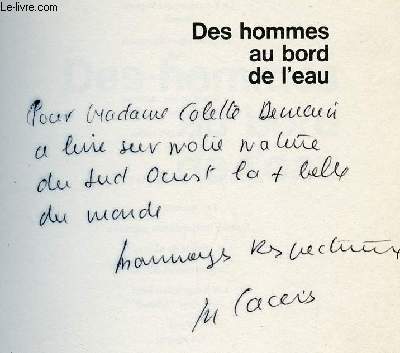 Le-livre.com
Des hommes
au bord
de l'eau
Pour Madame Colette
ce livre sur notre nature
du Sud Ouest la + belle
du monde
hommages respectueux